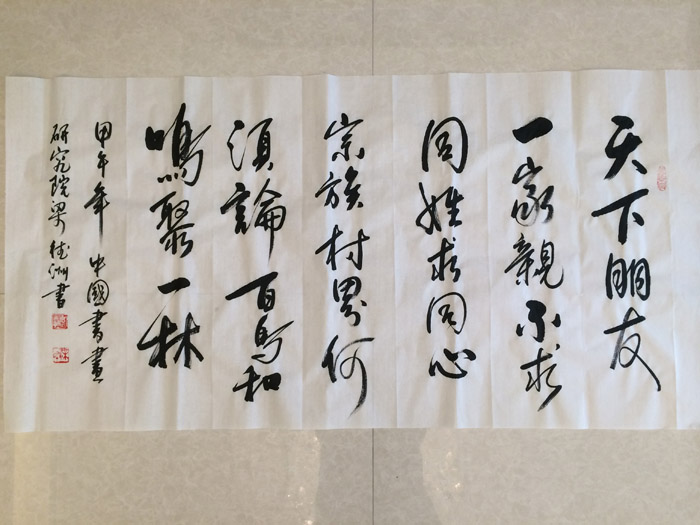 天下朋友
一家親不求
同姓求同心
宗族村界何
須論百鳥和
鳴聚一林
甲午年 中國書畫
研究院梁桂洲書